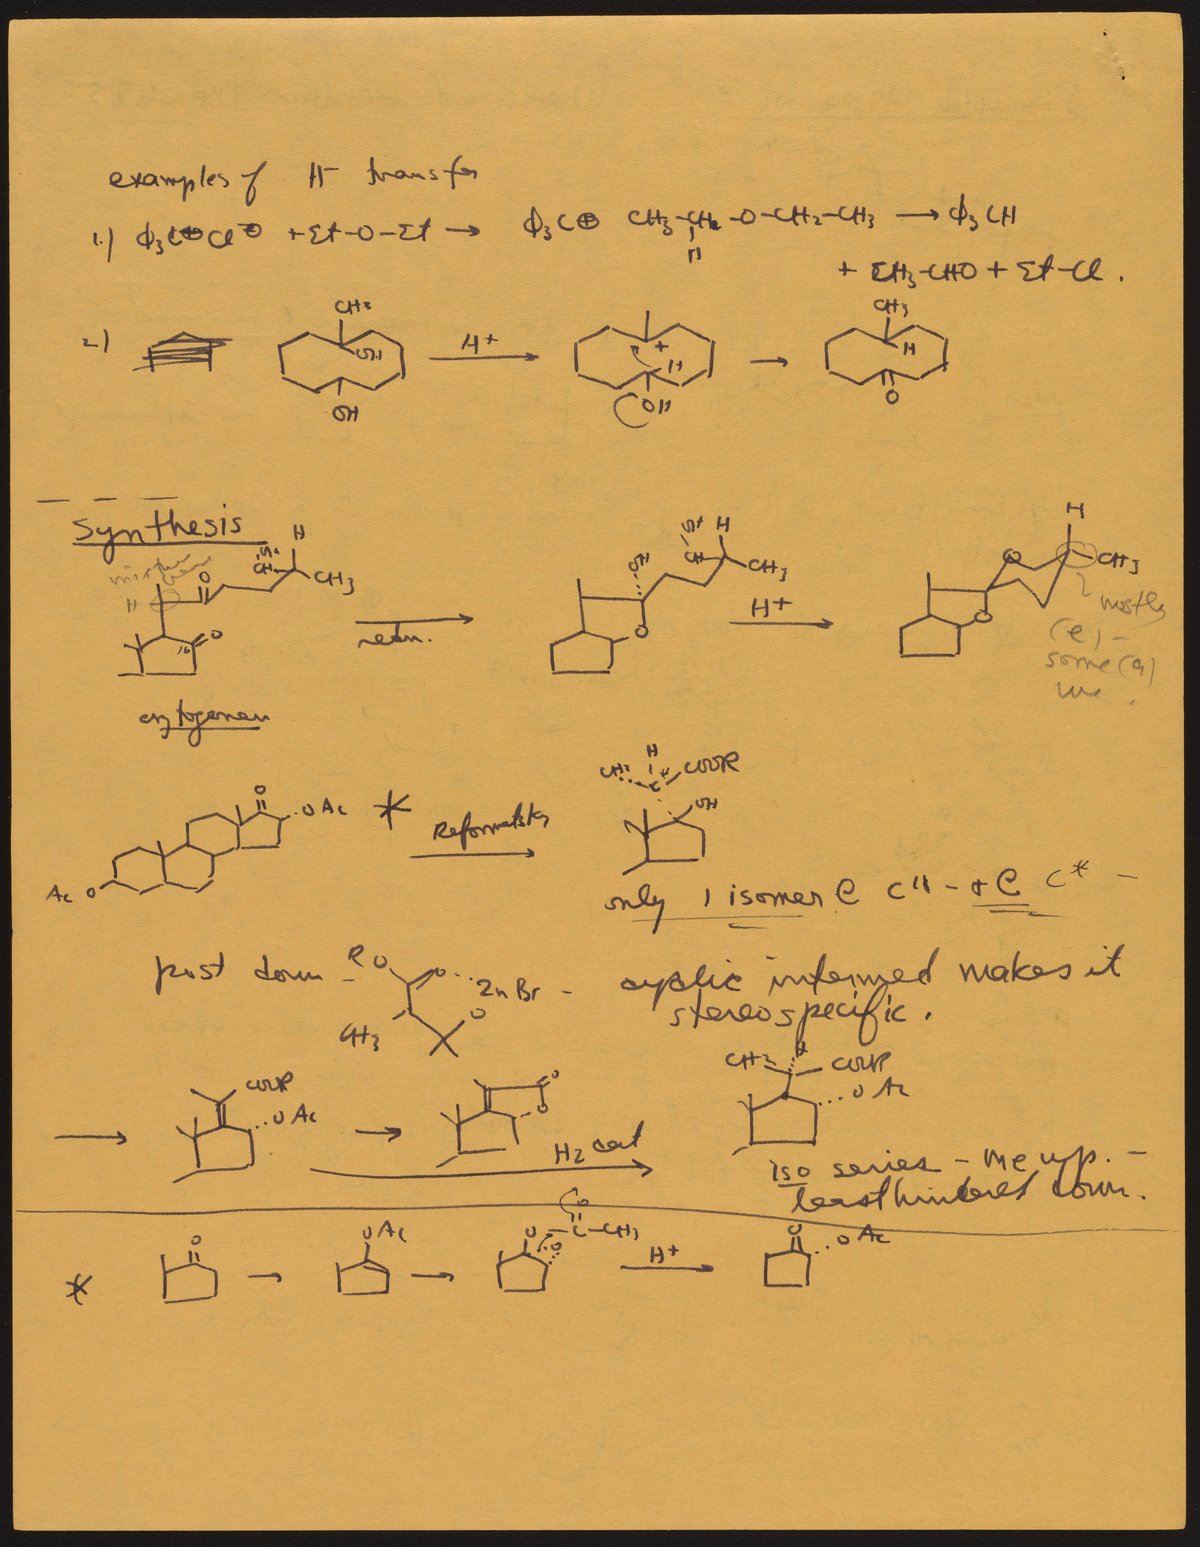 examples of H⁻ transfer
1.) Φ₃C⊕Cl⊖ + Et-O-Et → Φ₃C⊕ CH₃-CH-O-CH₂-CH₃ → Φ₃CH
H
+ CH₃-CHO + Et-Cl.
2.)
CH₃ OH OH
H+
+ H OH
CH₃ H O
Synthesis
mixture here
H O CH H CH₃
16 O
redn.
OH CH H CH₃
O
H+
O H CH₃
O
mostly
(e) -
some (a)
cryptogenin
AcO O OAc *
Reformatsky
CH₃ H C* COOR
OH
only 1 isomer @ C17 + @ C* -
RO O ZnBr - cyclic intermed makes it
CH₃ O
stereospecific.
→ COOR OAc
→ O O
H₂ cat
CH₃ H COOR
OAc
iso series - me up. -
least hindered down.
* O → OAc → O O C-CH₃ O
H+
O OAc